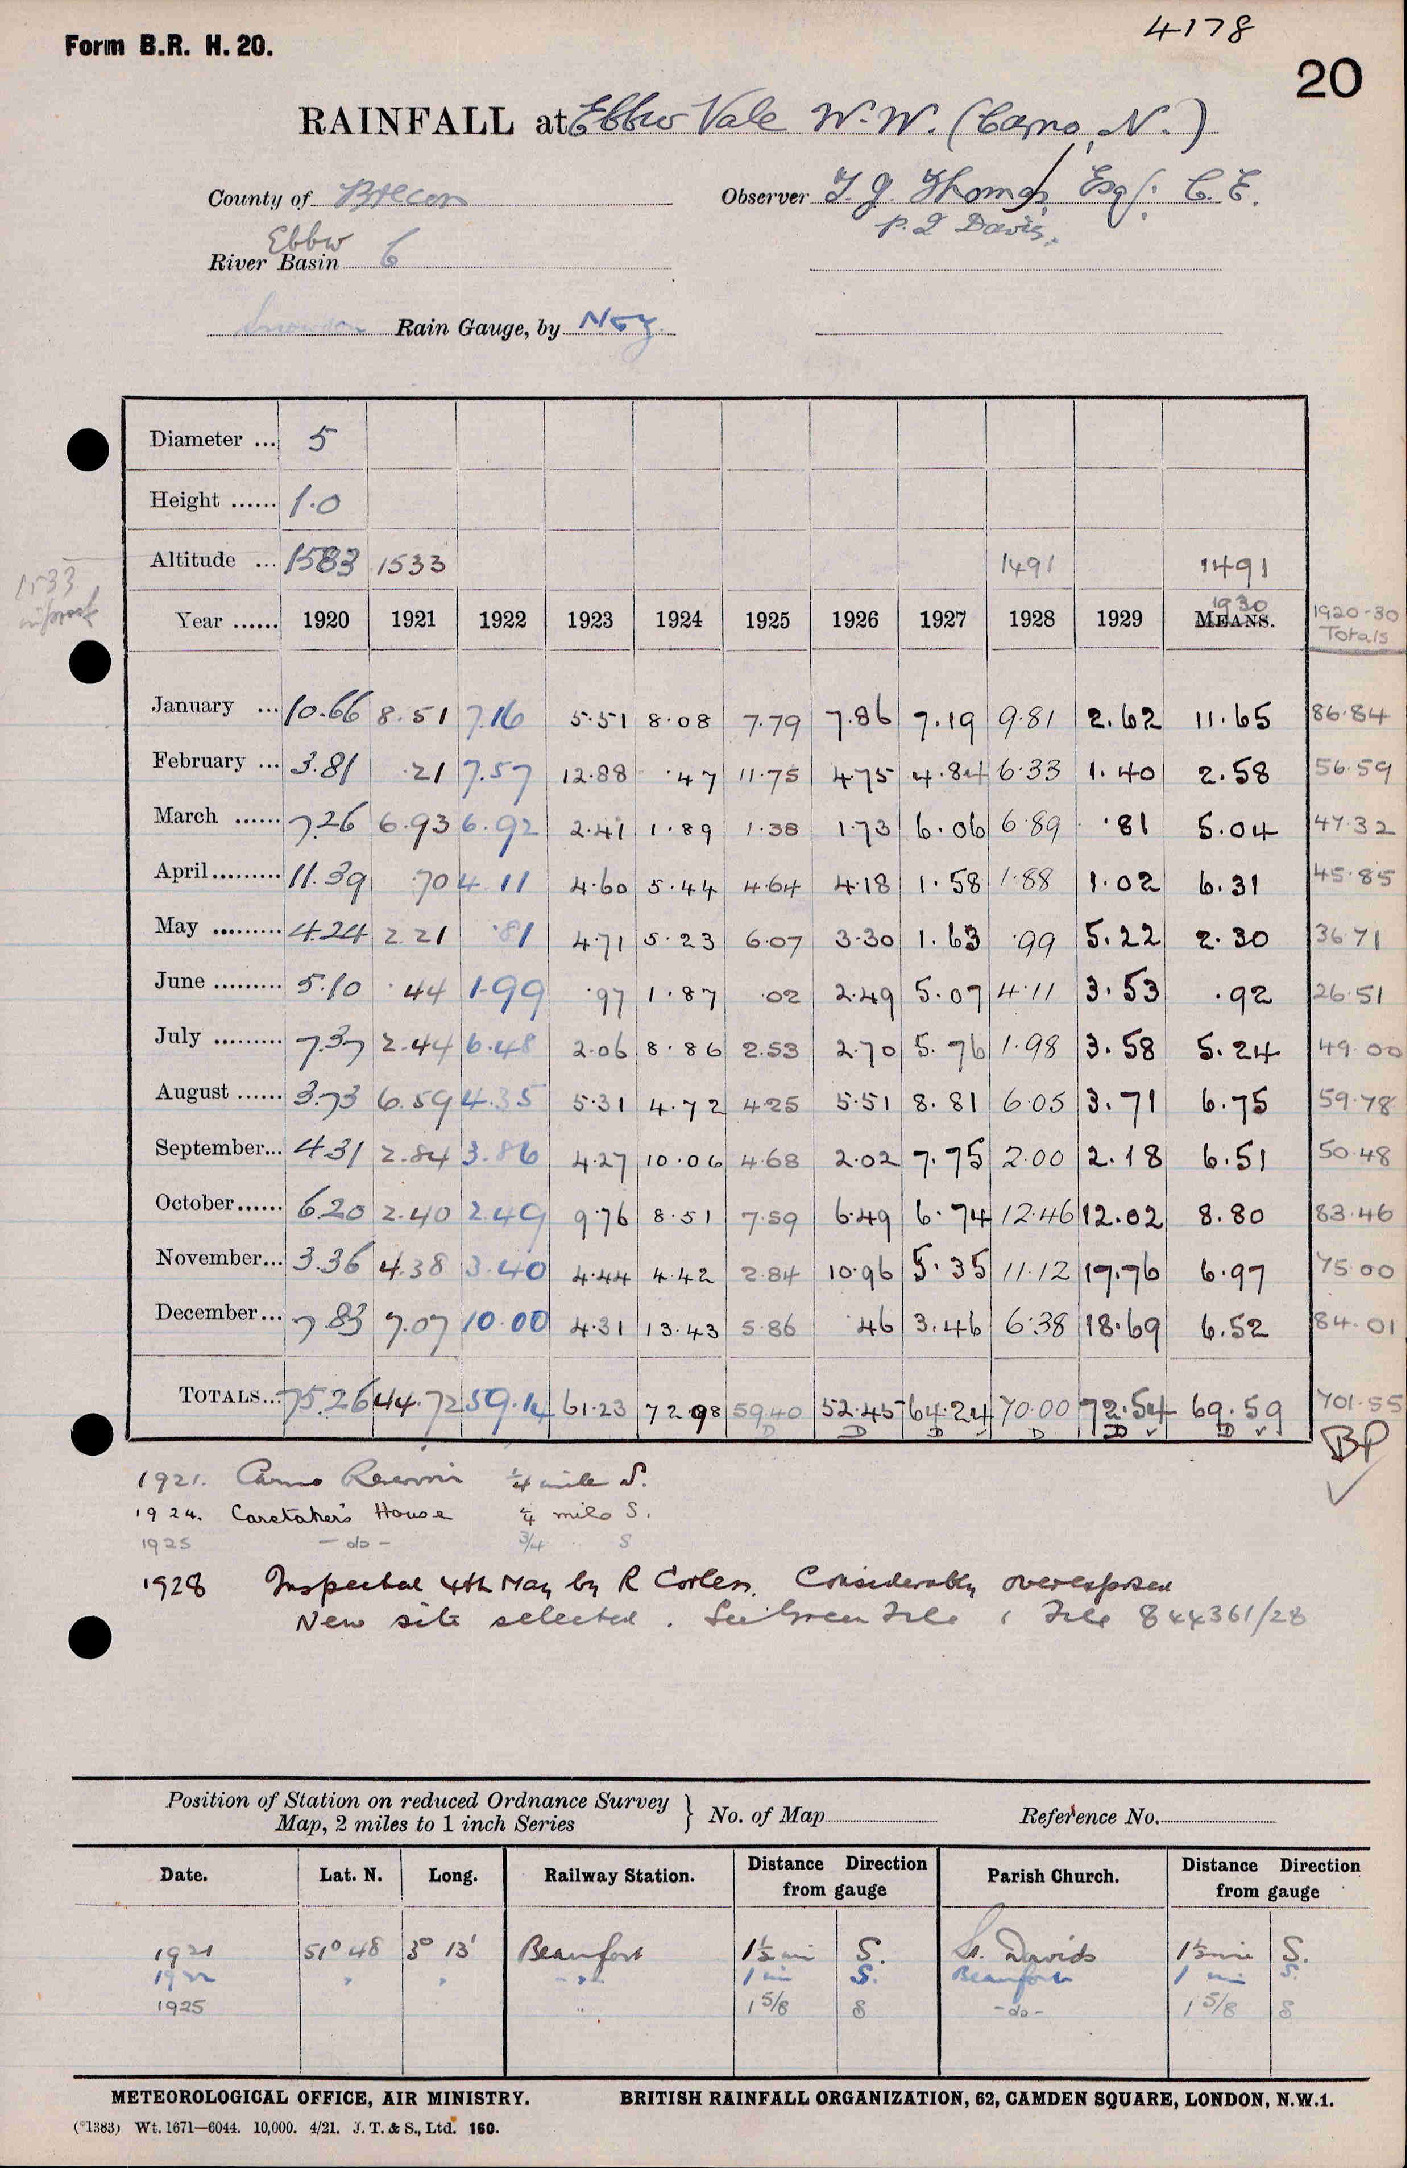 4178
Form B.R. H. 20.
20
RAINFALL at Ebbw Vale W.W. (Carno, N.)
County of Brecon Observer T. J. Thomas, Esq. C.E.
P. I Davis.
Ebbw
River Basin 6
Snowdon Rain Gauge, by Neg.
Diameter ... 5
Height ...... 1.0
Altitude ... 1583 1533 1491 1491
1533
Year ...... 1920 1921 1922 1923 1924 1925 1926 1927 1928 1929 MEANS. 1930 1920-30 Totals
January ... 10.66 8.51 7.16 5.51 8.08 7.79 7.86 7.19 9.81 2.62 11.65 86.84
February ... 3.81 .21 7.57 12.88 .47 11.75 4.75 4.84 6.33 1.40 2.58 56.59
March ...... 7.26 6.93 6.92 2.41 1.89 1.38 1.73 6.06 6.89 .81 5.04 47.32
April......... 11.39 .70 4.11 4.60 5.44 4.64 4.18 1.58 1.88 1.02 6.31 45.85
May ......... 4.24 2.21 .81 4.71 5.23 6.07 3.30 1.63 .99 5.22 2.30 36.71
June ......... 5.10 .44 1.99 .97 1.87 .02 2.49 5.07 4.11 3.53 .92 26.51
July ......... 7.37 2.44 6.48 2.06 8.86 2.53 2.70 5.76 1.98 3.58 5.24 49.00
August ...... 3.73 6.59 4.35 5.31 4.72 4.25 5.51 8.81 6.05 3.71 6.75 59.78
September... 4.31 2.84 3.86 4.27 10.06 4.68 2.02 7.75 2.00 2.18 6.51 50.48
October...... 6.20 2.40 2.49 9.76 8.51 7.59 6.49 6.74 12.46 12.02 8.80 83.46
November... 3.36 4.38 3.40 4.44 4.42 2.84 10.96 5.35 11.12 17.76 6.97 75.00
December... 7.83 7.07 10.00 4.31 13.43 5.86 .46 3.46 6.38 18.69 6.52 84.01
TOTALS... 75.26 44.72 59.14 61.23 72.98 59.40 52.45 64.24 70.00 72.54 69.59 701.55
D D D D D ✓ D ✓
BP
✓
1921. Carno Reservoir ¼ mile S.
1924. Caretaker's House ¾ mile S.
1925 -do- 3/4 S
1928 Inspected 4th May by R Corless. Considerably overexposed
New site selected. See Green File & File 844361/28
Position of Station on reduced Ordnance Survey
Map, 2 miles to 1 inch Series } No. of Map Reference No.
Date. Lat. N. Long. Railway Station. Distance Direction from gauge Parish Church. Distance Direction from gauge
1921 51° 48 3° 13' Beaufort 1½ mi S. St. Davids 1½ mi S.
1922 " " - " - 1 mi S. Beaufort 1 mi S.
1925 " 1 5/8 S -do- 1 5/8 S
METEOROLOGICAL OFFICE, AIR MINISTRY. BRITISH RAINFALL ORGANIZATION, 62, CAMDEN SQUARE, LONDON, N.W.1.
(*1383) Wt. 1671—6044. 10,000. 4/21. J. T. & S., Ltd. 160.